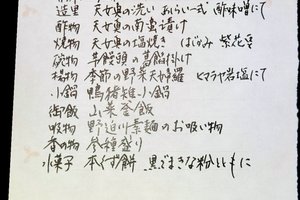 造里 天女魚の洗い あらい一式 酢味噌にて
酢物 天女魚の南蛮漬け
焼物 天女魚の塩焼き はじかみ
碗物 草饅頭の葛餡掛け
揚物 季節の野菜天婦羅 ヒマラヤ岩塩にて
小鍋 鴨雉雑小鍋
御飯 山菜釜飯
吸物 野迫川素麺のお吸い物
香の物 各種盛り
水菓子 本くず餅 黒ごまきな粉とともに